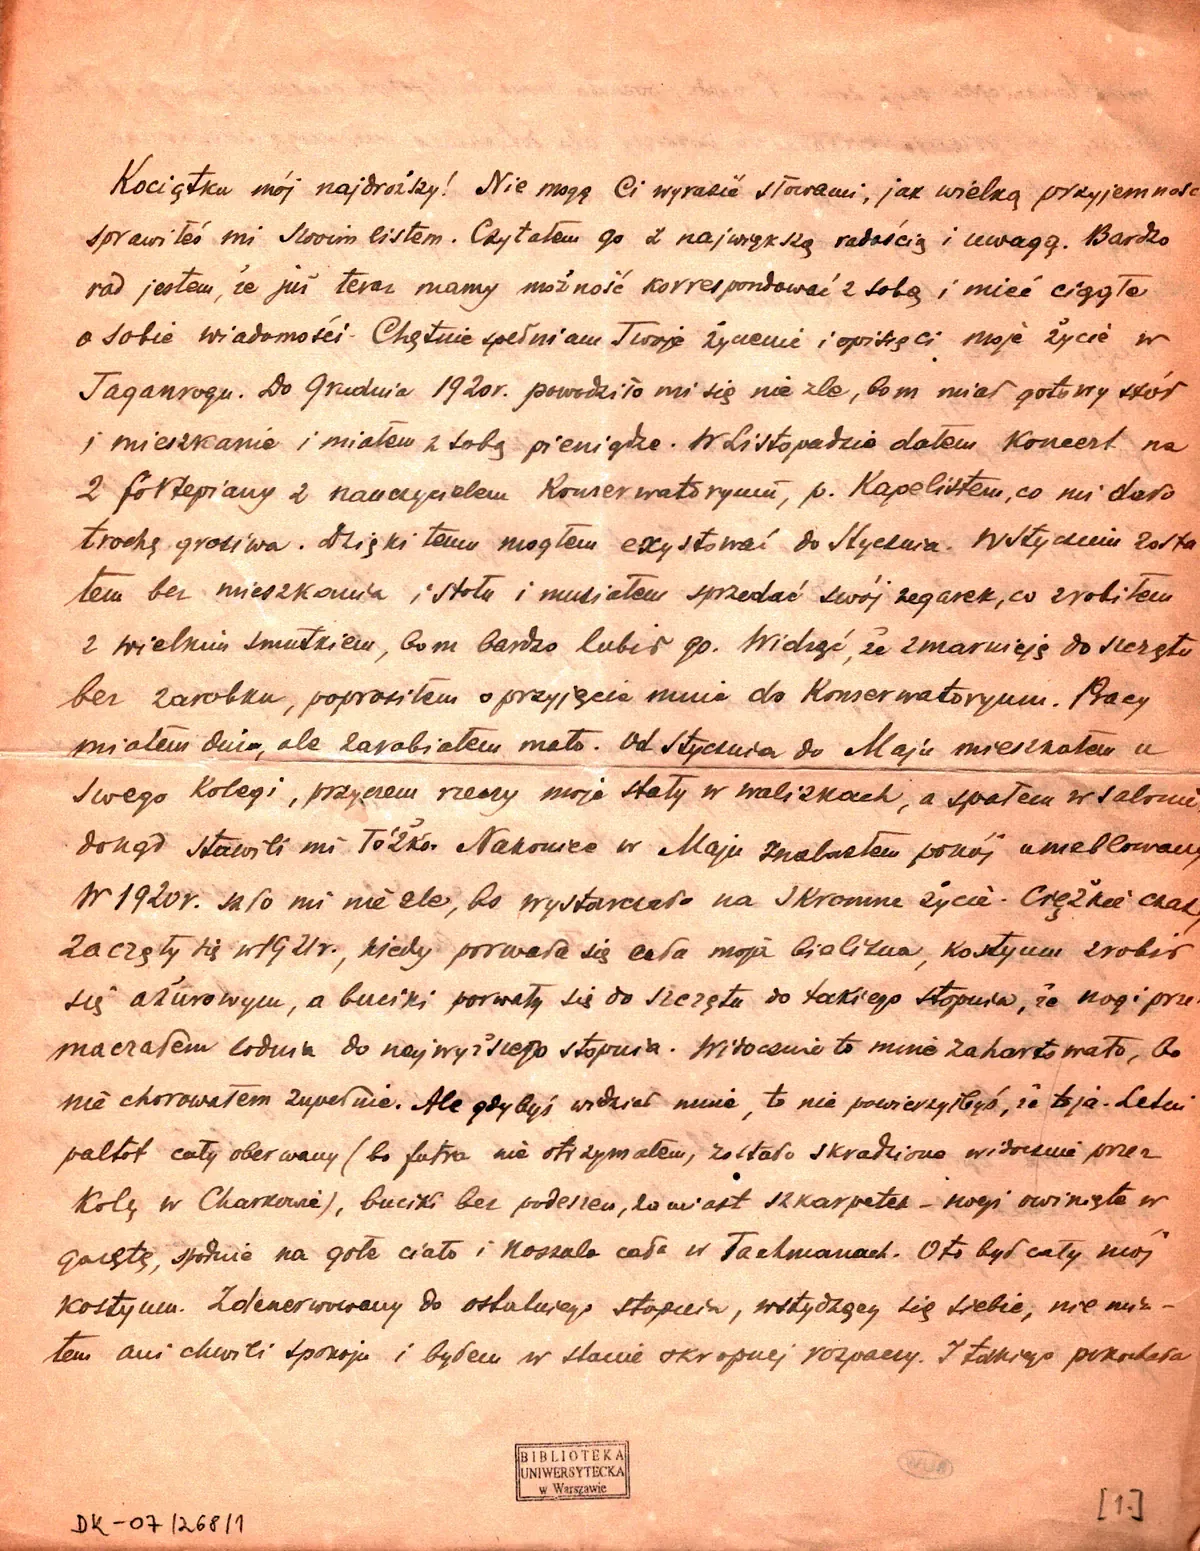 Kociątku mój najdroższy! Nie mogę Ci wyrazić słowami, jak wielką przyjemność
sprawiłeś mi swoim listem. Czytałem go z największą radością i uwagą. Bardzo
rad jestem, że już teraz mamy możność korrespondować z sobą i mieć ciągłe
o sobie wiadomości. Chętnie spełniam Twoje życzenie i opiszę ci moje życie w
Taganrogu. Do Grudnia 1920r. powodziło mi się nie źle, bom miał gotowy stół
i mieszkanie i miałem z sobą pieniądze. W Listopadzie dałem koncert na
2 fortepiany z nauczycielem Konserwatoryum, p. Kapelistem, co mi dało
trochę grosiwa. Dzięki temu mogłem exystować do Stycznia. W Styczniu zosta
łem bez mieszkania i stołu i musiałem sprzedać swój zegarek, co zrobiłem
z wielkim smutkiem, bom bardzo lubił go. Widząc, że zmarnieję do szczętu
bez zarobku, poprosiłem o przyjęcie mnie do Konserwatoryum. Pracy
miałem dużo, ale zarabiałem mało. Od Stycznia do Maju mieszkałem u
swego kolegi, przyczem rzeczy moje stały w walizkach, a spałem w salonie
dokąd stawili mi łóżko. Nakoniec w Maju znalazłem pokój umeblowany
W 1920r. szło mi nie źle, bo wystarczało na skromne życie. Ciężkie czasy
zaczęły się w 1921r., kiedy porwała się cała moja bielizna, kostyum zrobił
się ażurowym, a buciki porwały się do szczętu do takiego stopnia, że nogi prze
maczałem codnia do najwyższego stopnia. Widocznie to mnie zahartowało, bo
nie chorowałem zupełnie. Ale gdybyś widział mnie, to nie powierzyłbyś, że to ja. Letni
paltot cały oberwany (bo futra nie otrzymałem, zostało skradzione widocznie przez
Kolę w Charkowie), buciki bez podeszew, zamiast szkarpetek - nogi owinięte w
gazetę, spodnie na gołe ciało i koszula cała w łachmanach. Oto był cały mój
kostyum. Zdenerwowany do ostatniego stopnia, wstydzący się siebie, nie mia-
łem ani chwili spokoju i byłem w stanie okropnej rozpaczy. I takiego pokochała
BIBLIOTEKA
UNIWERSYTECKA
w Warszawie
WUB
DK-07/268/1
[1.]